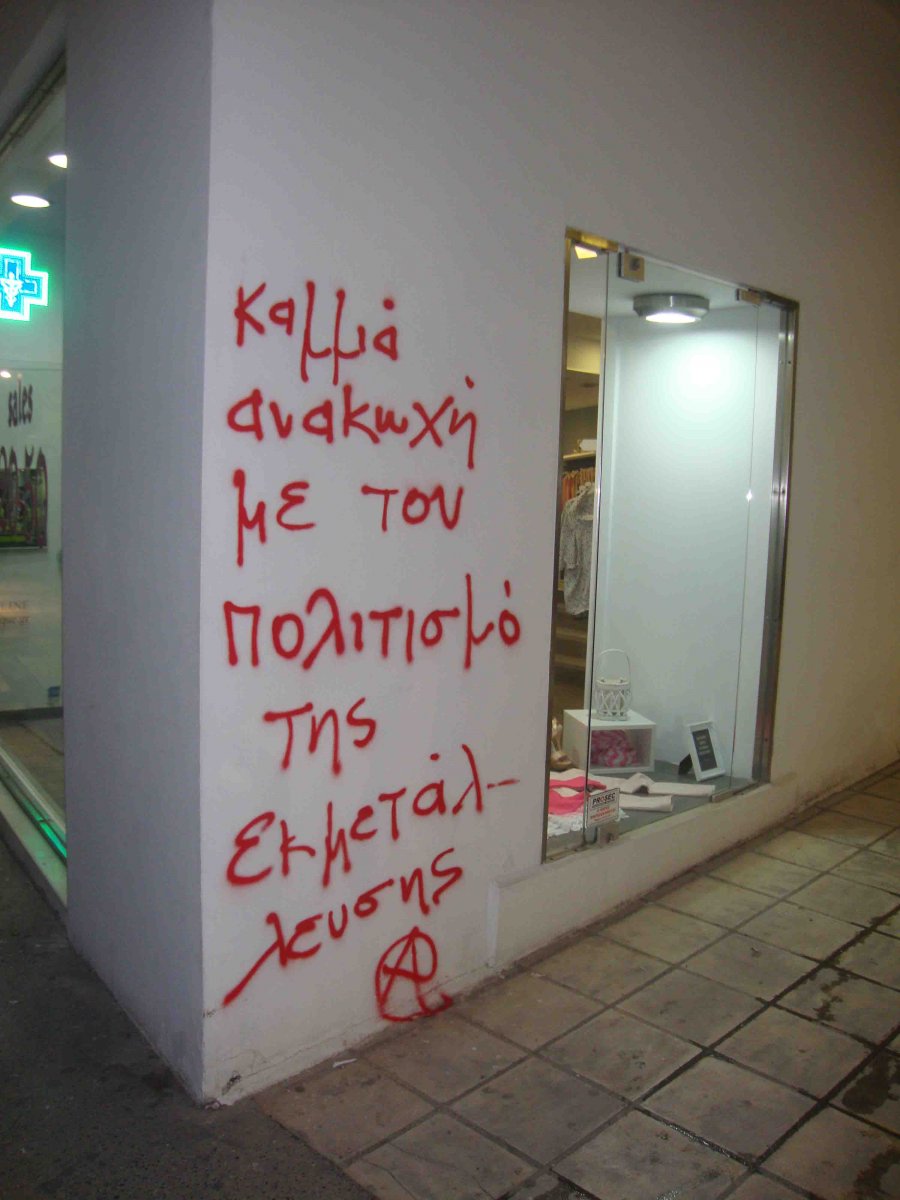 Καμμιά
ανακωχή
με τον
πολιτισμό
της
Εκμετάλ-
λευσης
sales
PROSEC